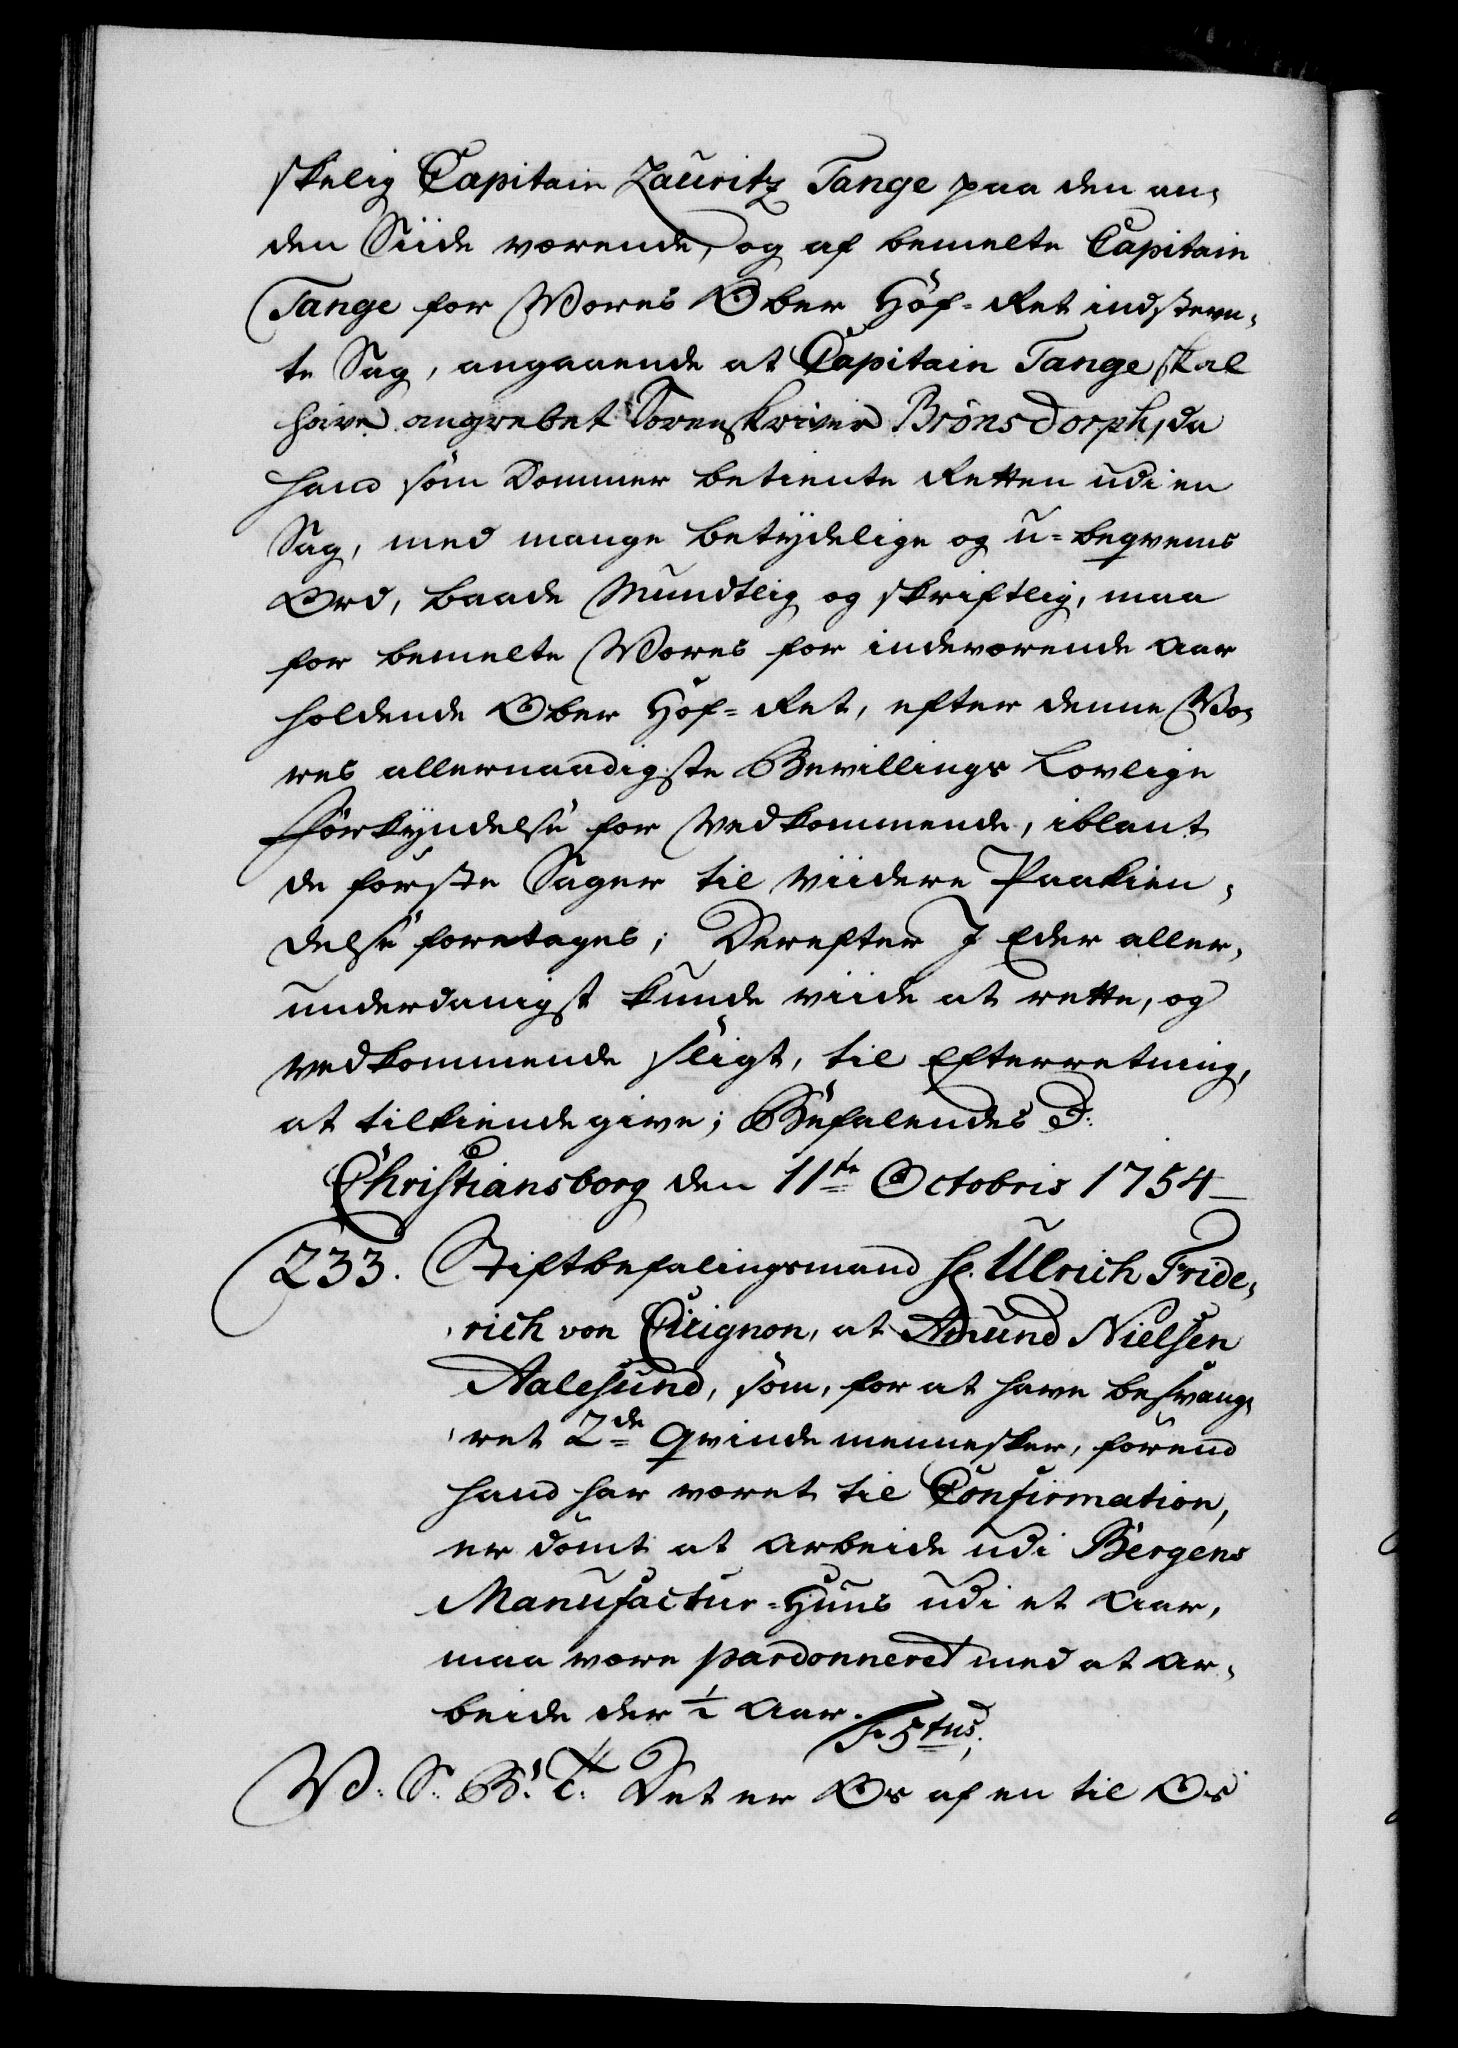 skelig Capitain Lauritz Tange paa den an-
den Siide værende, og af bemelte Capitain
Tange for Vores Ober Hof-Ret indstevn-
te Sag, angaaende at Capitain Tange skal
have angrebet Sorenskriver Brønsdorph, da
hand som Dommer betiente Retten udi en
Sag, med mange betydelige og u-beqvems
Ord, baade Mundtlig og skriftlig, maa
for bemelte Vores for indeværende Aar
holdende Ober Hof-Ret, efter denne Vo-
res allernaadigste Bevillings Lovlige
Forkyndelse for Vedkommende, iblant
de første Sager til Viidere Paakien-
delse foretages; Derefter I Eder aller-
underdanigst kunde viide at rette, og
Vedkommende sligt, til Efterretning,
at tilkiendegive; Befalendes D:
Christiansborg den 11te Octobris 1754
233. Stiftbefalingsmand Hr. Ulrich Fride-
rich von Cicignon, at Amund Nielsen
Aalesund, som, for at have besvang-
ret 2de Qvindemennesker, førend
hand har været til Confirmation,
er dømt at arbeide udi Bergens
Manufactur-Huus udi et Aar,
maa være pardonneret med at ar-
beide der ½ Aar.
F. 5tus.
V. S. B. T. Det er Os af en til Os